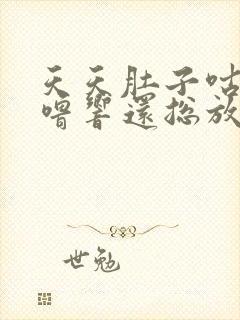 天天肚子咕
嚕響還總放
世勉